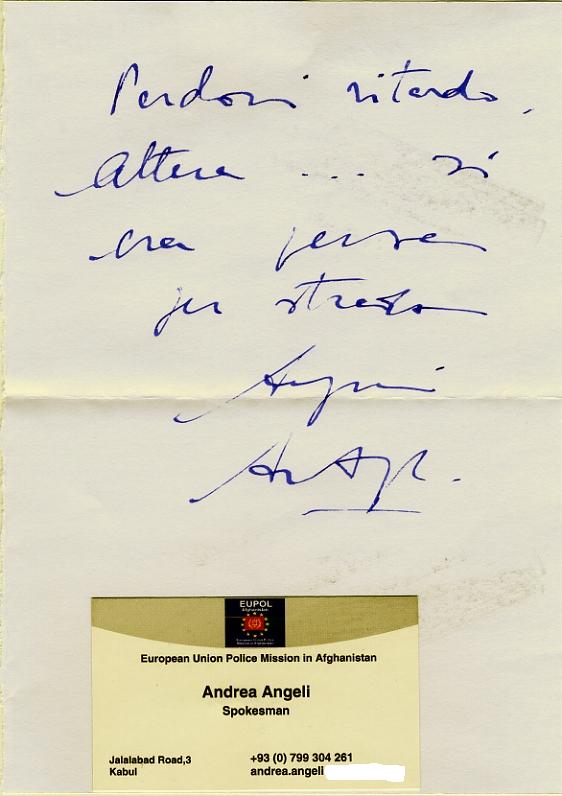 Perdoni ritardo,
Altera ... si
era persa
per strada
Auguri
EUPOL
Afghanistan
European Union Police Mission in Afghanistan
Andrea Angeli
Spokesman
Jalalabad Road,3
Kabul
+93 (0) 799 304 261
andrea.angeli